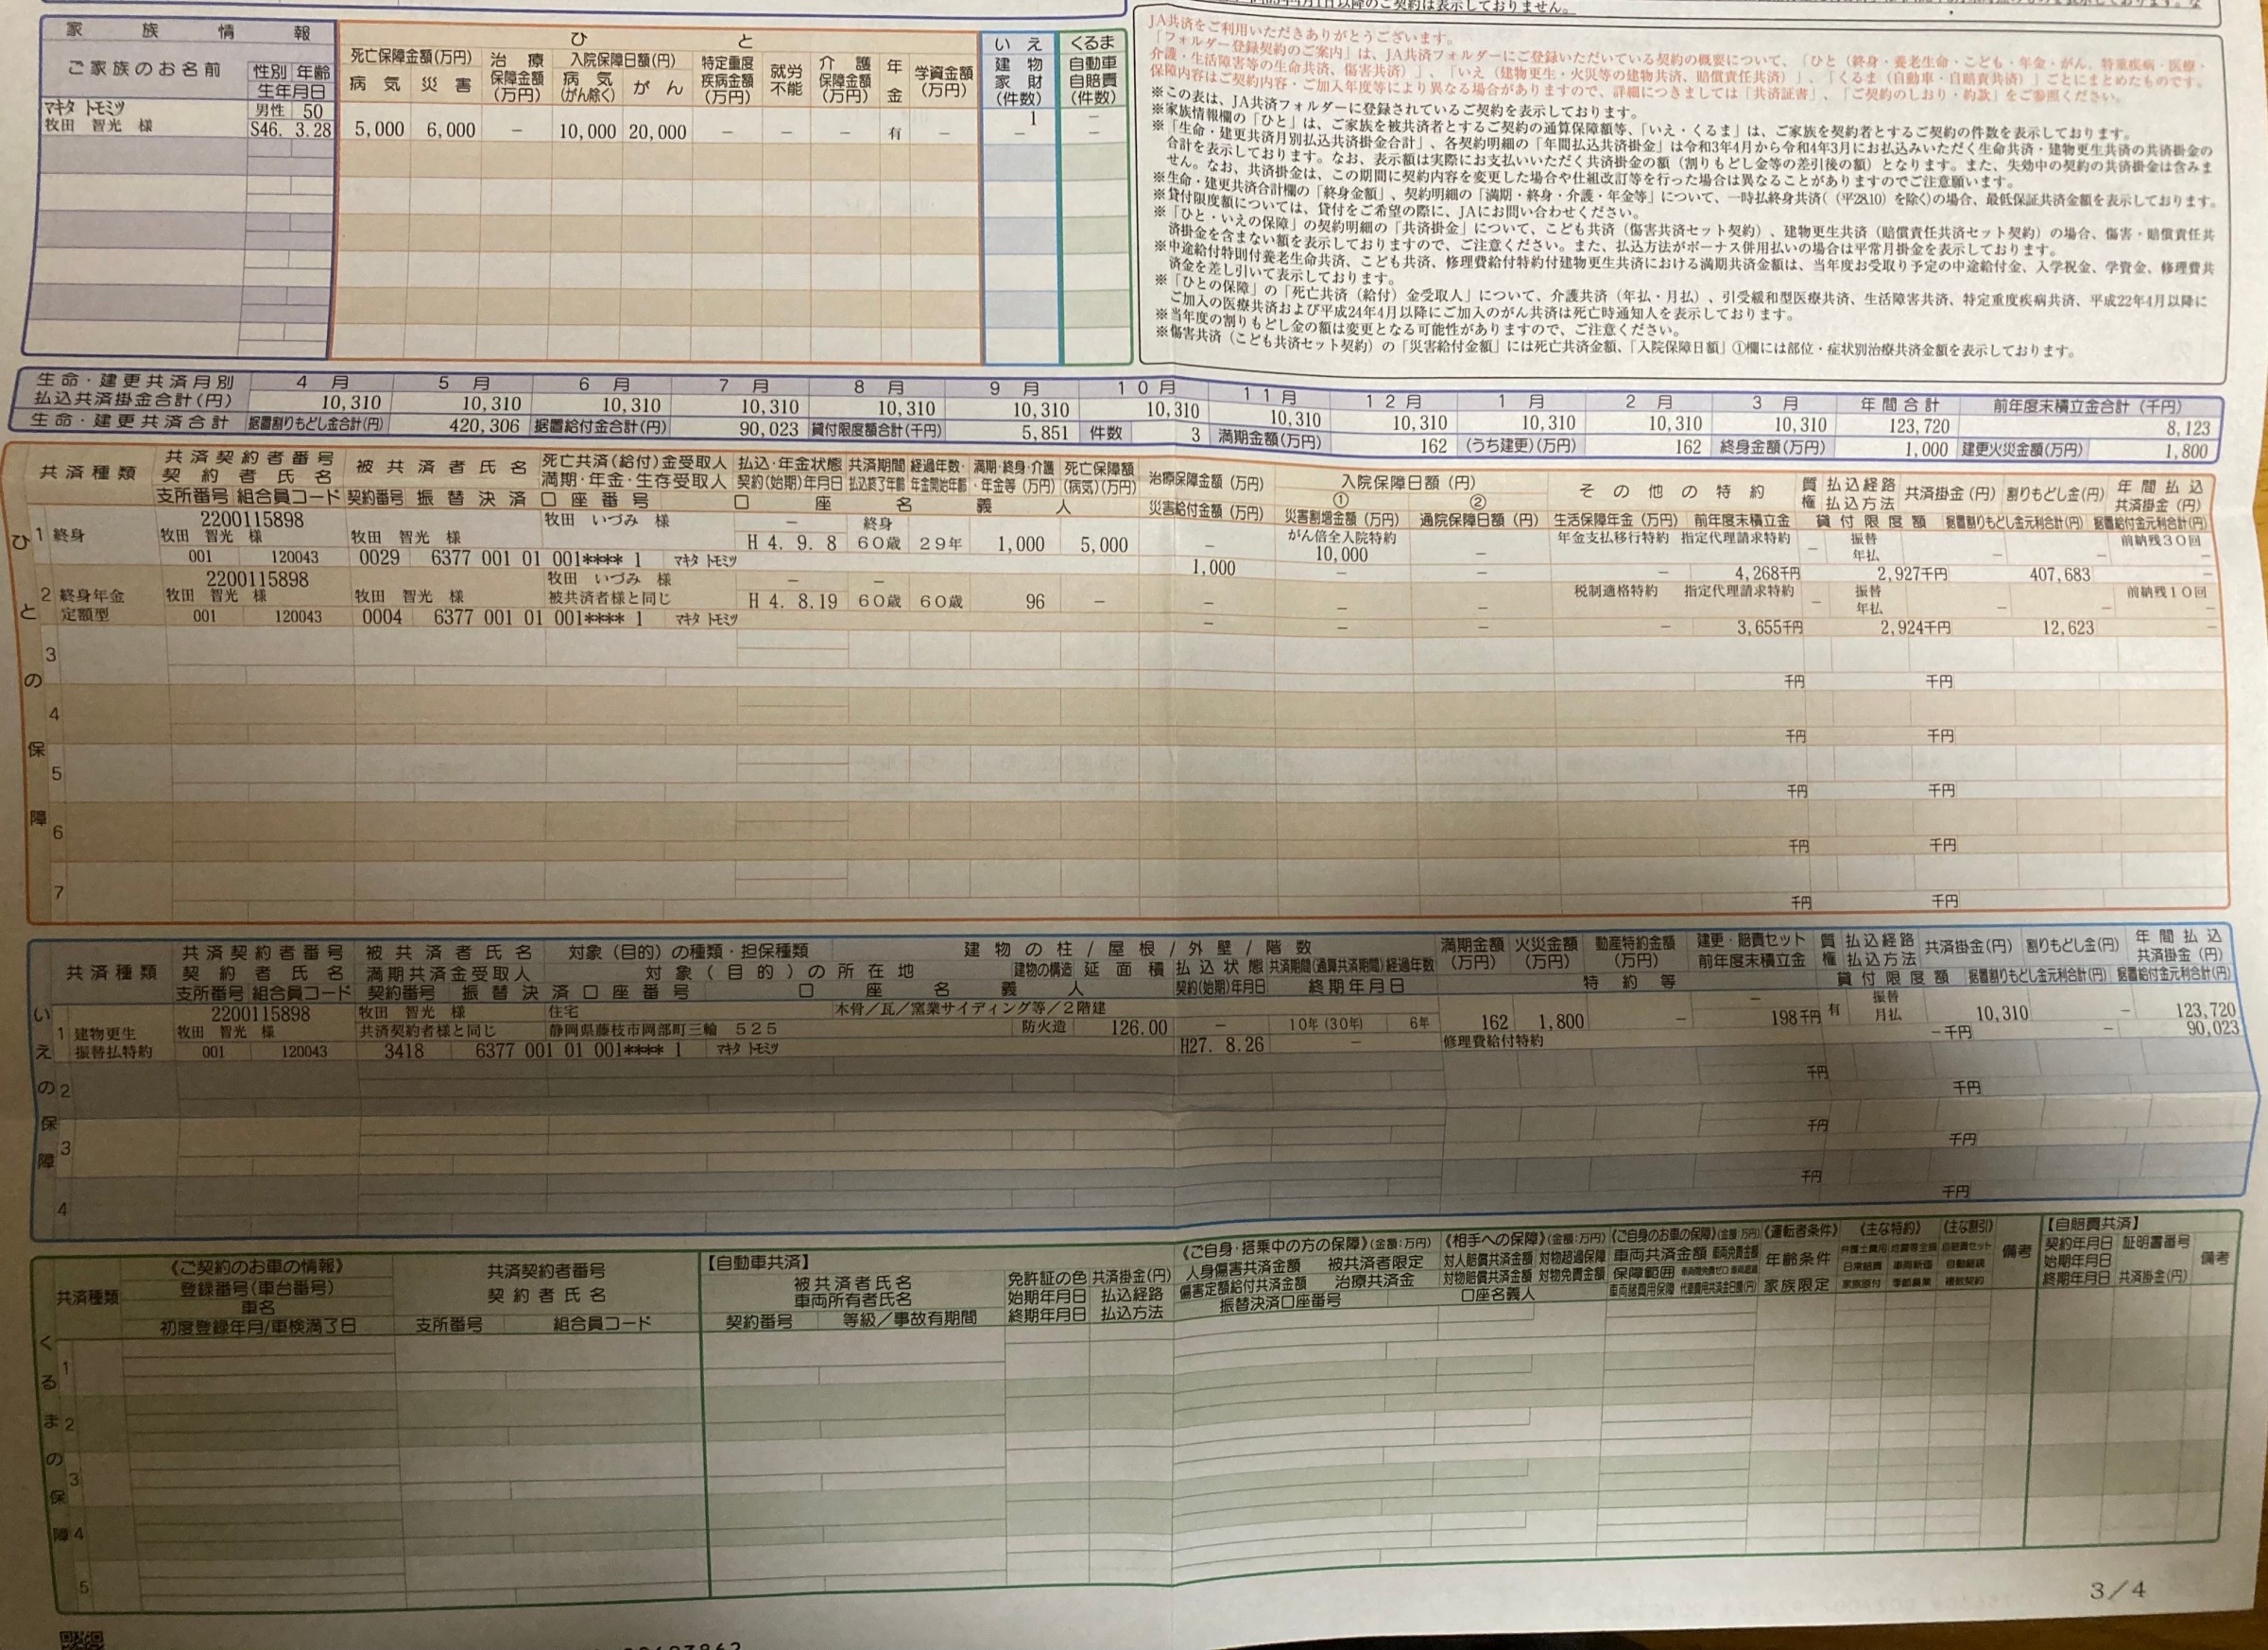 以降のご契約は表示しておりません。
家族情報
ひと
いえ
くるま
ご家族のお名前
性別 年齢
生年月日
死亡保障金額(万円)
病気 災害
治療保障金額(万円)
入院保障日額(円)
病気(がん除く) がん
特定重度疾病金額(万円)
就労不能
介護保障金額(万円)
年金
学資金額(万円)
建物家財(件数)
自動車自賠責(件数)
マキタ トモミツ 男性 50 1 −
牧田 智光 様 S46. 3.28 5,000 6,000 − 10,000 20,000 − − − 有 − − −
JA共済をご利用いただきありがとうございます。
「フォルダー登録契約のご案内」は、JA共済フォルダーにご登録いただいている契約の概要について、「ひと（終身・養老生命・こども・年金・がん、特重疾病・医療・
介護・生活障害等の生命共済、傷害共済）」、「いえ（建物更生・火災等の建物共済、賠償責任共済）」、「くるま（自動車・自賠責共済）」ごとにまとめたものです。
保障内容はご契約内容・ご加入年度等により異なる場合がありますので、詳細につきましては「共済証書」、「ご契約のしおり・約款」をご参照ください。
※この表は、JA共済フォルダーに登録されているご契約を表示しております。
※家族情報欄の「ひと」は、ご家族を被共済者とするご契約の通算保障額等、「いえ・くるま」は、ご家族を契約者とするご契約の件数を表示しております。
※「生命・建更共済月別払込共済掛金合計」、各契約明細の「年間払込共済掛金」は令和3年4月から令和4年3月にお払込みいただく生命共済・建物更生共済の共済掛金の
合計を表示しております。なお、表示額は実際にお支払いいただく共済掛金の額（割りもどし金等の差引後の額）となります。また、失効中の契約の共済掛金は含みま
せん。なお、共済掛金は、この期間に契約内容を変更した場合や仕組改訂等を行った場合は異なることがありますのでご注意願います。
※生命・建更共済合計欄の「終身金額」、契約明細の「満期・終身・介護・年金等」について、一時払終身共済(（平28.10）を除く)の場合、最低保証共済金額を表示しております。
※貸付限度額については、貸付をご希望の際に、JAにお問い合わせください。
※「ひと・いえの保障」の契約明細の「共済掛金」について、こども共済（傷害共済セット契約）、建物更生共済（賠償責任共済セット契約）の場合、傷害・賠償責任共
済掛金を含まない額を表示しておりますので、ご注意ください。また、払込方法がボーナス併用払いの場合は平常月掛金を表示しております。
※中途給付特則付養老生命共済、こども共済、修理費給付特約付建物更生共済における満期共済金額は、当年度お受取り予定の中途給付金、入学祝金、学資金、修理費共
済金を差し引いて表示しております。
※「ひとの保障」の「死亡共済（給付）金受取人」について、介護共済（年払・月払）、引受緩和型医療共済、生活障害共済、特定重度疾病共済、平成22年4月以降に
ご加入の医療共済および平成24年4月以降にご加入のがん共済は死亡時通知人を表示しております。
※当年度の割りもどし金の額は変更となる可能性がありますので、ご注意ください。
※傷害共済（こども共済セット契約）の「災害給付金額」には死亡共済金額、「入院保障日額」①欄には部位・症状別治療共済金額を表示しております。
生命・建更共済月別 4月 5月 6月 7月 8月 9月 10月 11月 12月 1月 2月 3月 年間合計 前年度末積立金合計（千円）
払込共済掛金合計(円) 10,310 10,310 10,310 10,310 10,310 10,310 10,310 10,310 10,310 10,310 10,310 10,310 123,720 8,123
生命・建更共済合計 据置割りもどし金合計(円) 420,306 据置給付金合計(円) 90,023 貸付限度額合計(千円) 5,851 件数 3 満期金額(万円) 162 (うち建更)(万円) 162 終身金額(万円) 1,000 建更火災金額(万円) 1,800
ひとの保障
共済種類 共済契約者番号 被共済者氏名 死亡共済(給付)金受取人 払込・年金状態 共済期間 経過年数・ 満期・終身・介護 死亡保障額 治療保障金額（万円） 入院保障日額（円） その他の特約 質権 払込経路 共済掛金（円） 割りもどし金(円) 年間払込
契約者氏名 満期・年金・生存受取人 契約(始期)年月日 払込終了年齢 年金開始年齢 ・年金等（万円） (病気)(万円) ① ② 払込方法 共済掛金（円）
支所番号 組合員コード 契約番号 振替決済口座番号 口座名義人 災害給付金額（万円） 災害割増金額（万円） 通院保障日額（円） 生活保障年金（万円） 前年度末積立金 貸付限度額 据置割りもどし金元利合計(円) 据置給付金元利合計(円)
1 終身 2200115898 牧田 いづみ 様 − 終身 がん倍全入院特約 年金支払移行特約 指定代理請求特約 振替 前納残30回
牧田 智光 様 牧田 智光 様 H 4. 9. 8 60歳 29年 1,000 5,000 − 10,000 − − 年払 − − −
001 120043 0029 6377 001 01 001**** 1 マキタ トモミツ 1,000 − − − 4,268千円 2,927千円 407,683 −
2 終身年金 定額型 2200115898 牧田 いづみ 様 − − 税制適格特約 指定代理請求特約 振替 前納残10回
牧田 智光 様 牧田 智光 様 被共済者様と同じ H 4. 8.19 60歳 60歳 96 − − − − − 年払 − − −
001 120043 0004 6377 001 01 001**** 1 マキタ トモミツ − − − − 3,655千円 2,924千円 12,623 −
3 千円 千円
4 千円 千円
5 千円 千円
6 千円 千円
7 千円 千円
いえの保障
共済種類 共済契約者番号 被共済者氏名 対象（目的）の種類・担保種類 建物の柱/屋根/外壁/階数 満期金額(万円) 火災金額(万円) 動産特約金額(万円) 建更・賠責セット 質権 払込経路 共済掛金(円) 割りもどし金(円) 年間払込
契約者氏名 満期共済金受取人 対象（目的）の所在地 建物の構造 延面積 払込状態 共済期間(通算共済期間) 経過年数 前年度末積立金 払込方法 共済掛金（円）
支所番号 組合員コード 契約番号 振替決済口座番号 口座名義人 契約(始期)年月日 終期年月日 特約等 貸付限度額 据置割りもどし金元利合計(円) 据置給付金元利合計(円)
1 建物更生 振替払特約 2200115898 牧田 智光 様 住宅 木骨／瓦／窯業サイディング等／2階建 − 振替
牧田 智光 様 共済契約者様と同じ 静岡県藤枝市岡部町三輪 525 防火造 126.00 − 10年(30年) 6年 162 1,800 − 198千円 有 月払 10,310 − 123,720
001 120043 3418 6377 001 01 001**** 1 マキタ トモミツ H27. 8.26 − 修理費給付特約 −千円 − 90,023
2 千円 千円
3 千円 千円
4 千円 千円
くるまの保障
共済種類 《ご契約のお車の情報》 共済契約者番号 【自動車共済】 《ご自身・搭乗中の方の保障》(金額:万円) 《相手への保障》(金額:万円) 《ご自身のお車の保障》(金額:万円) 《運転者条件》 《主な特約》 《主な割引》 備考 【自賠責共済】
登録番号(車台番号) 契約者氏名 被共済者氏名 免許証の色 共済掛金(円) 人身傷害共済金額 被共済者限定 対人賠償共済金額 対物超過保障 車両共済金額 車両免責金額 年齢条件 契約年月日 証明書番号 備考
車名 車両所有者氏名 始期年月日 払込経路 傷害定額給付共済金額 治療共済金 対物賠償共済金額 対物免責金額 保障範囲 日常賠責 車両新価 自動継続 始期年月日
初度登録年月/車検満了日 支所番号 組合員コード 契約番号 等級／事故有期間 終期年月日 払込方法 振替決済口座番号 口座名義人 車両諸費用保障 家族限定 家族原付 季節農業 複数契約 終期年月日 共済掛金(円)
1
2
3
4
5
3／4